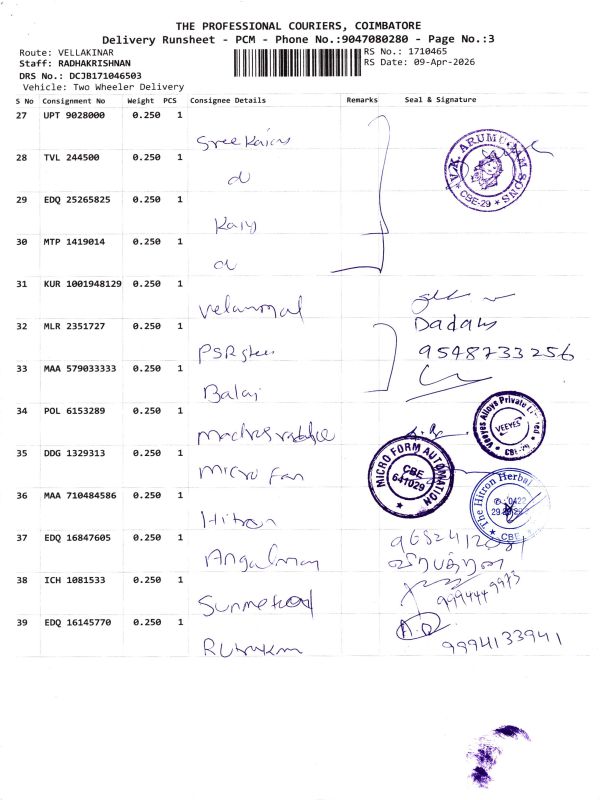 THE PROFESSIONAL COURIERS, COIMBATORE
Delivery Runsheet - PCM - Phone No.:9047080280 - Page No.:3
Route: VELLAKINAR
RS No.: 1710465
Staff: RADHAKRISHNAN
RS Date: 09-Apr-2026
DRS No.: DCJB171046503
Vehicle: Two Wheeler Delivery
S No Consignment No Weight PCS Consignee Details Remarks Seal & Signature
27 UPT 9028000 0.250 1
V.K. ARUMUGAM SONS
* CBE-29 *
28 TVL 244500 0.250 1
29 EDQ 25265825 0.250 1
30 MTP 1419014 0.250 1
31 KUR 1001948129 0.250 1
Velammal
32 MLR 2351727 0.250 1 Dadaly
PSR
9548733256
33 MAA 579033333 0.250 1
Balaji
34 POL 6153289 0.250 1
Veeyes Alloys Private Limited
VEEYES
CBE-29
35 DDG 1329313 0.250 1
Micro fan
MICRO FORM AUTOMATION
CBE
641029
36 MAA 710484586 0.250 1
Hitron
The Hitron Herbal
CBE
37 EDQ 16847605 0.250 1
Angalman
38 ICH 1081533 0.250 1
9994449973
39 EDQ 16145770 0.250 1
9994133941